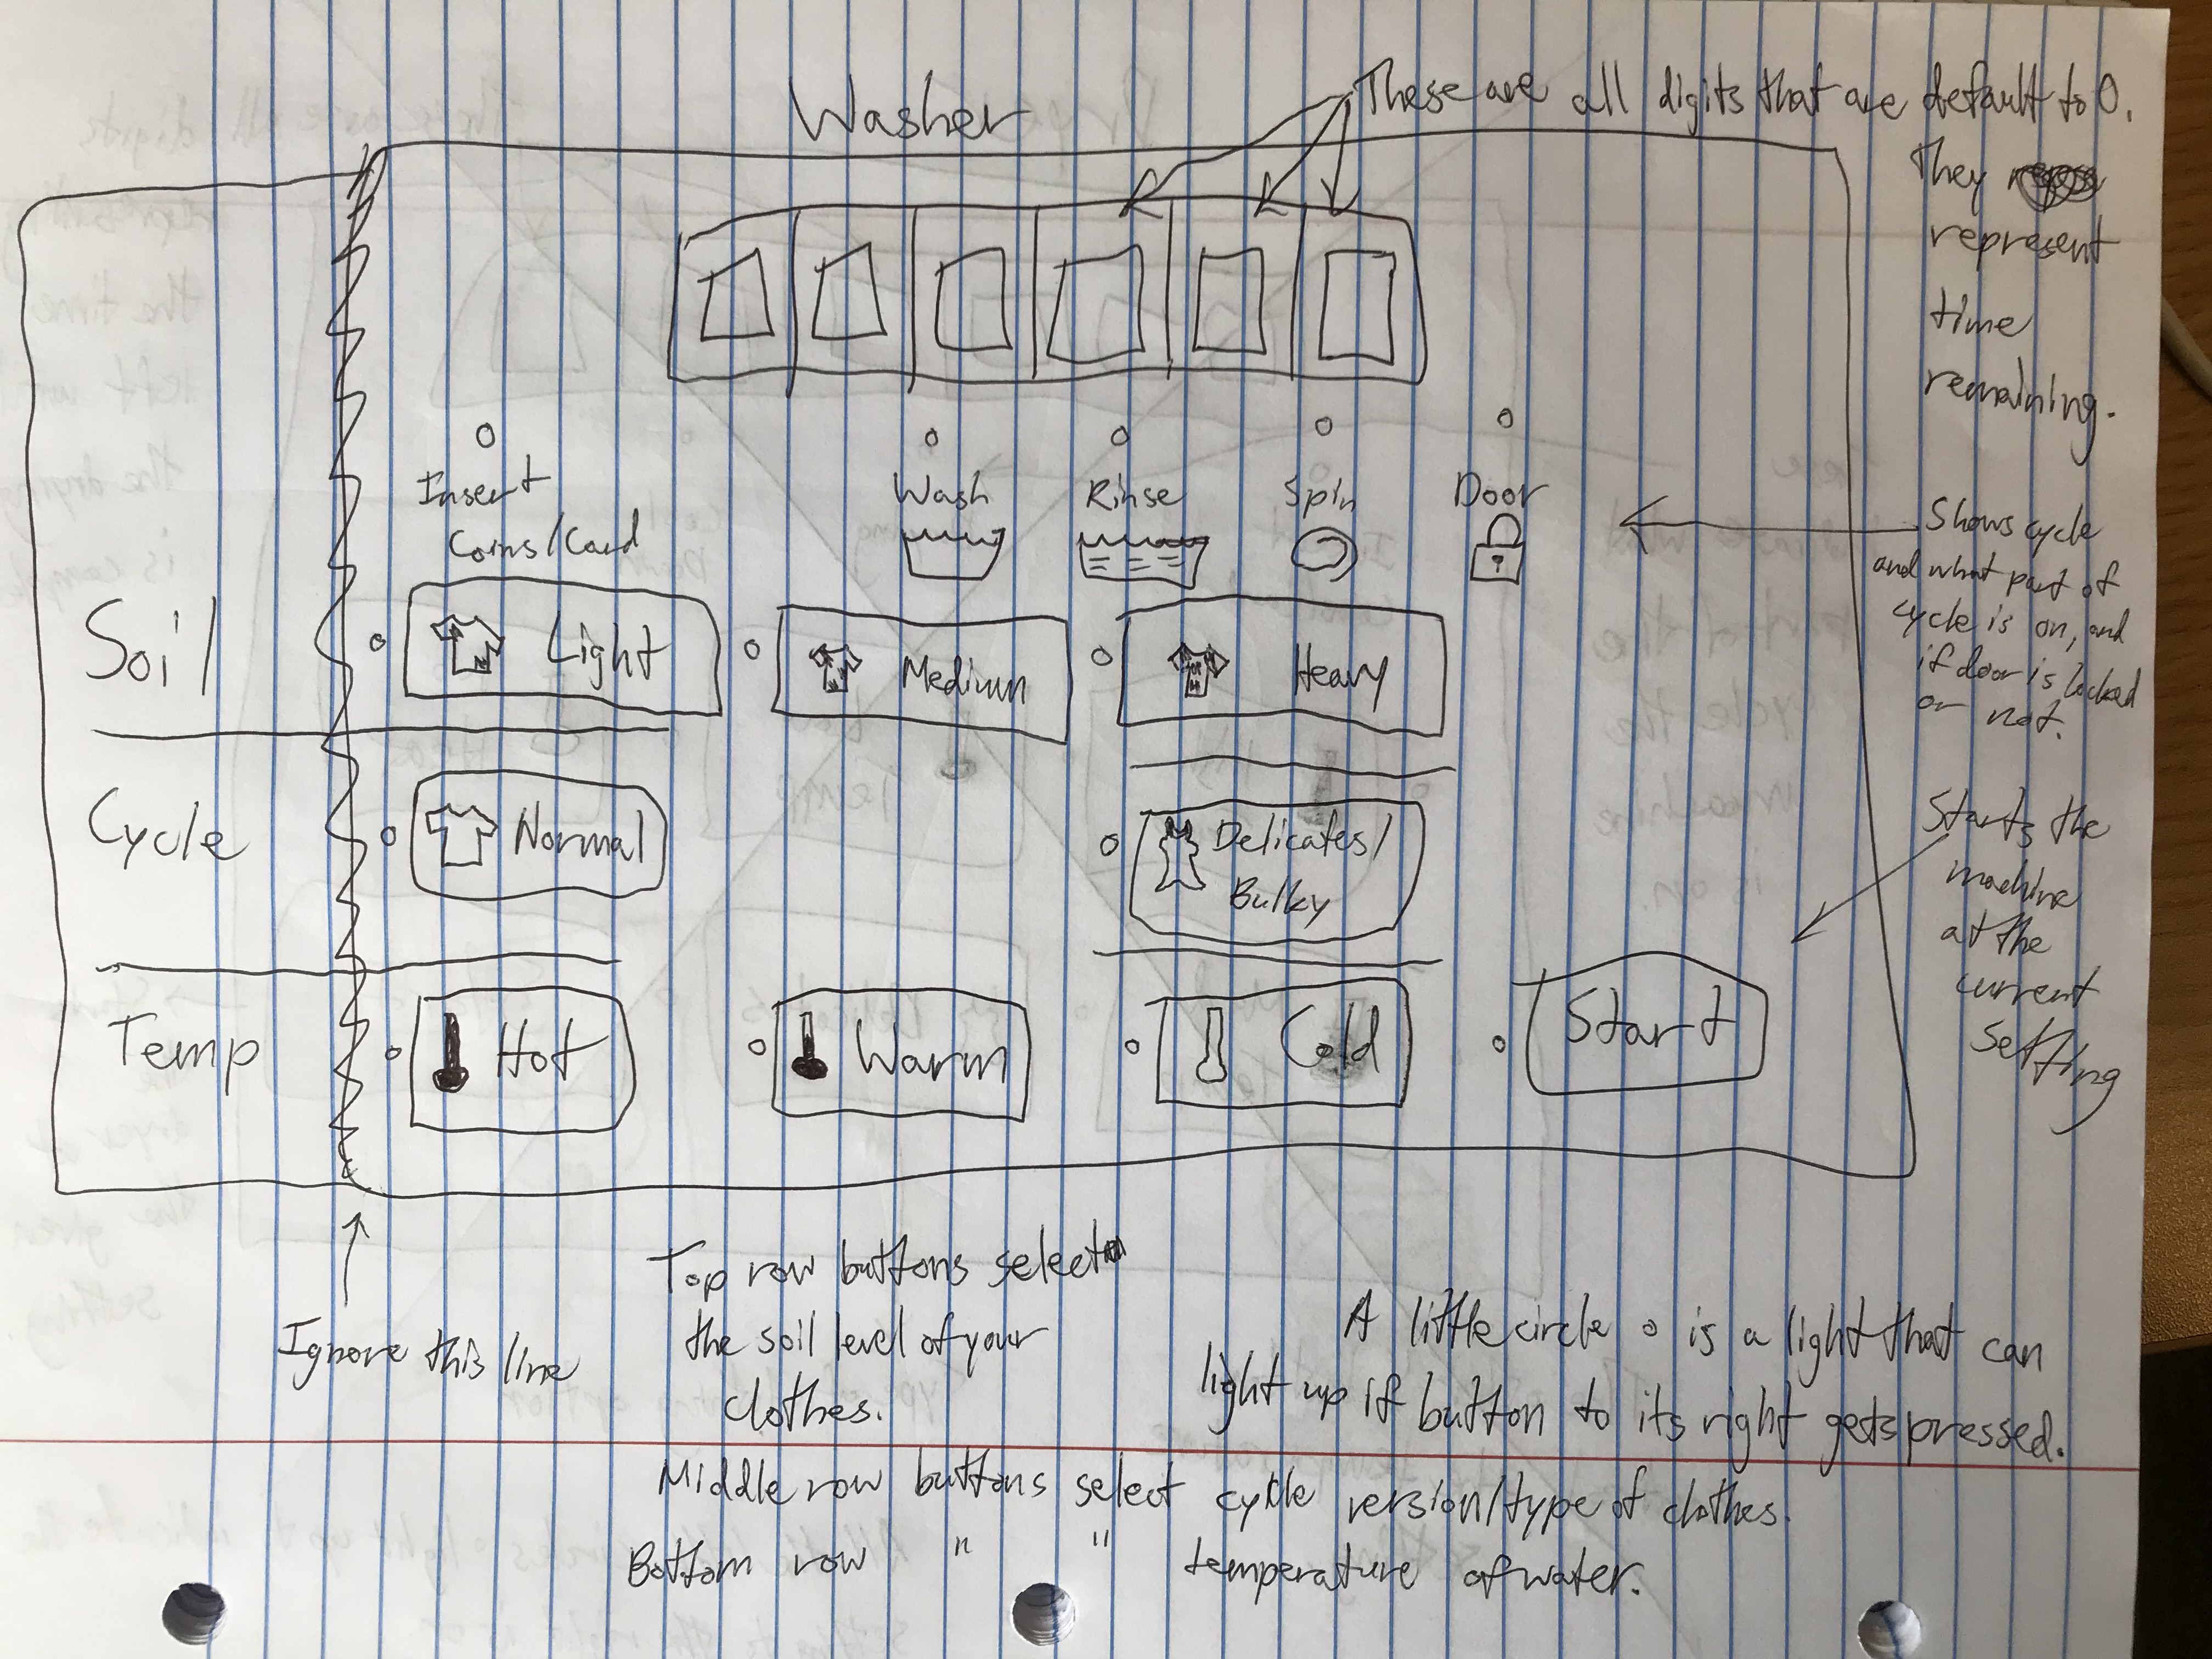 Washer
These are all digits that are default to 0.
They
represent
time
remaining.
Insert
Coins/Card
Wash
Rinse
Spin
Door
Shows cycle
and what part of
cycle is on, and
if door is locked
or not.
Soil
Light
Medium
Heavy
Cycle
Normal
Delicates/
Bulky
Starts the
machine
at the
current
setting
Temp
Hot
Warm
Cold
Start
Ignore this line
Top row buttons select
the soil level of your
clothes.
A little circle o is a light that can
light up if button to its right gets pressed.
Middle row buttons select cycle version/type of clothes.
Bottom row " " temperature of water.